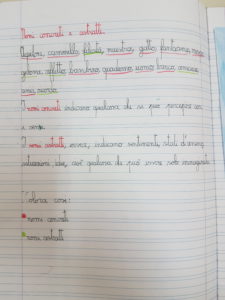 Nomi concreti e astratti.
Aquilone, cammello, felicità, maestra, gatto,
gelosia, affetto, bambino, quaderno, uomo, banco, amicizia
I nomi concreti indicano qualcosa che si può percepire con
I nomi astratti, invece, indicano sentimenti, stati d'animo,
idee, cioè qualcosa che può essere solo immaginato.
Colora con:
nomi concreti
nomi astratti